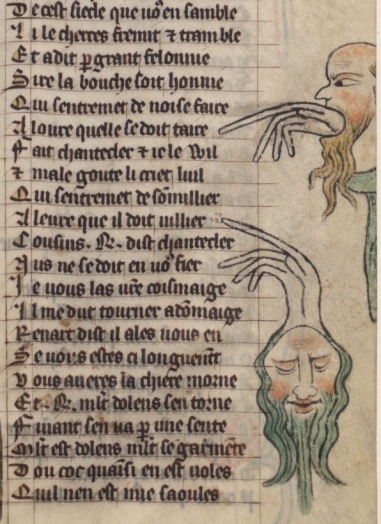 De cest siecle que uo9 en samble
Li lecherres fremit ⁊ tramble
Et a dit ꝑ grant felonnie
Sire la bouche soit honnie
Qui sentremet de noise faire
A loure quelle se doit taire
Fait chantecler ⁊ ie le wil
⁊ male goute li criet luil
Qui sentremet de sōmillier
A leure que il doit uillier
Cousins .R. dist chantecler
Nus ne se doit en uo9 fier
De uous las ur̄e coisinaige
Il me dut tourner a dōmaige
Renart dist il ales uous en
Se uous estes ci longuem̄t
Vous aueres la chiere morne
Et .R. ml̄t dolens sen torne
Fuiant sen ua ꝑ une sente
Ml̄t est dolens ml̄t se gaimēte
Dou coc quaīsi en est uoles
Quil nen est mie saoules